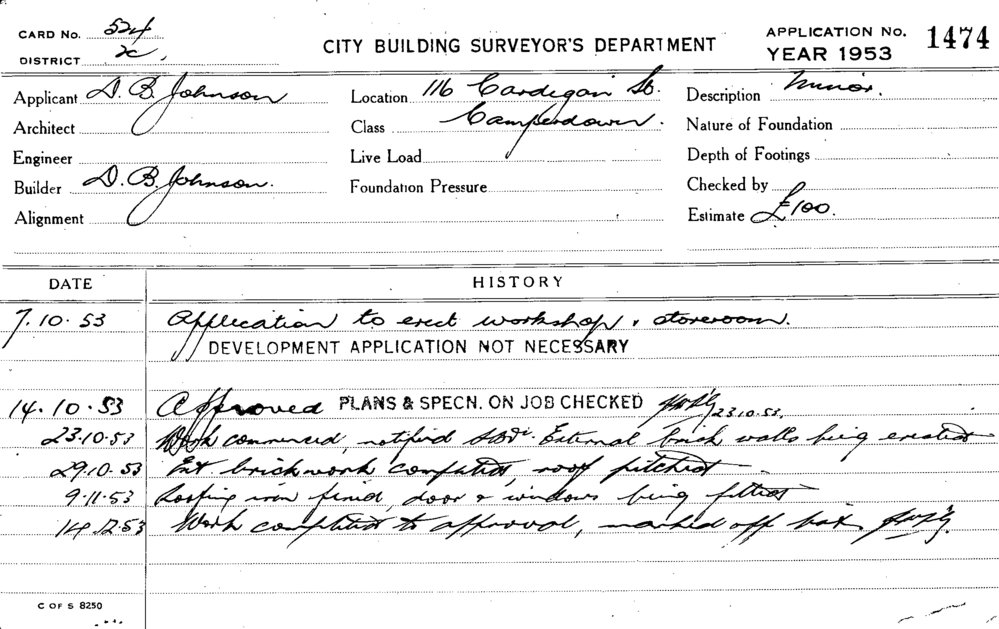 CARD No. 524
DISTRICT
CITY BUILDING SURVEYOR'S DEPARTMENT
APPLICATION No. 1474
YEAR 1953
Applicant D. B. Johnson
Location 116 Cardigan St.
Description Minor.
Architect
Class Camperdown.
Nature of Foundation
Engineer
Live Load
Depth of Footings
Builder D. B. Johnson.
Foundation Pressure
Checked by
Alignment
Estimate £100.
DATE HISTORY
7.10.53 Application to erect workshop & storeroom.
DEVELOPMENT APPLICATION NOT NECESSARY
14.10.53 Approved PLANS & SPECN. ON JOB CHECKED 23.10.53.
23.10.53 Work commenced, notified External brick walls being erected
29.10.53 Ext brickwork completed, roof pitched
9.11.53 Roofing iron fixed, door & windows being fitted
14.12.53 Work completed to approval, marked off
C OF S 8250